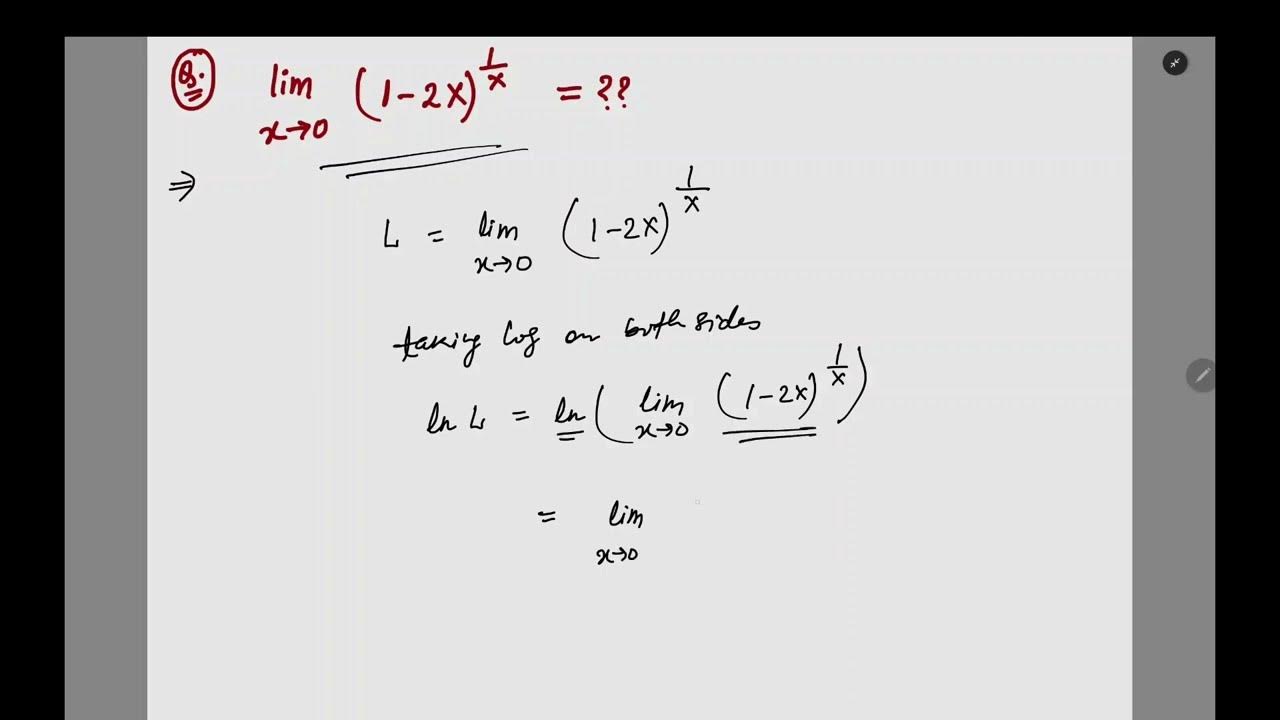 Q. lim x→0 (1-2x)^(1/x) = ??
⇒
L = lim x→0 (1-2x)^(1/x)
taking log on both sides
ln L = ln ( lim x→0 (1-2x)^(1/x) )
= lim x→0